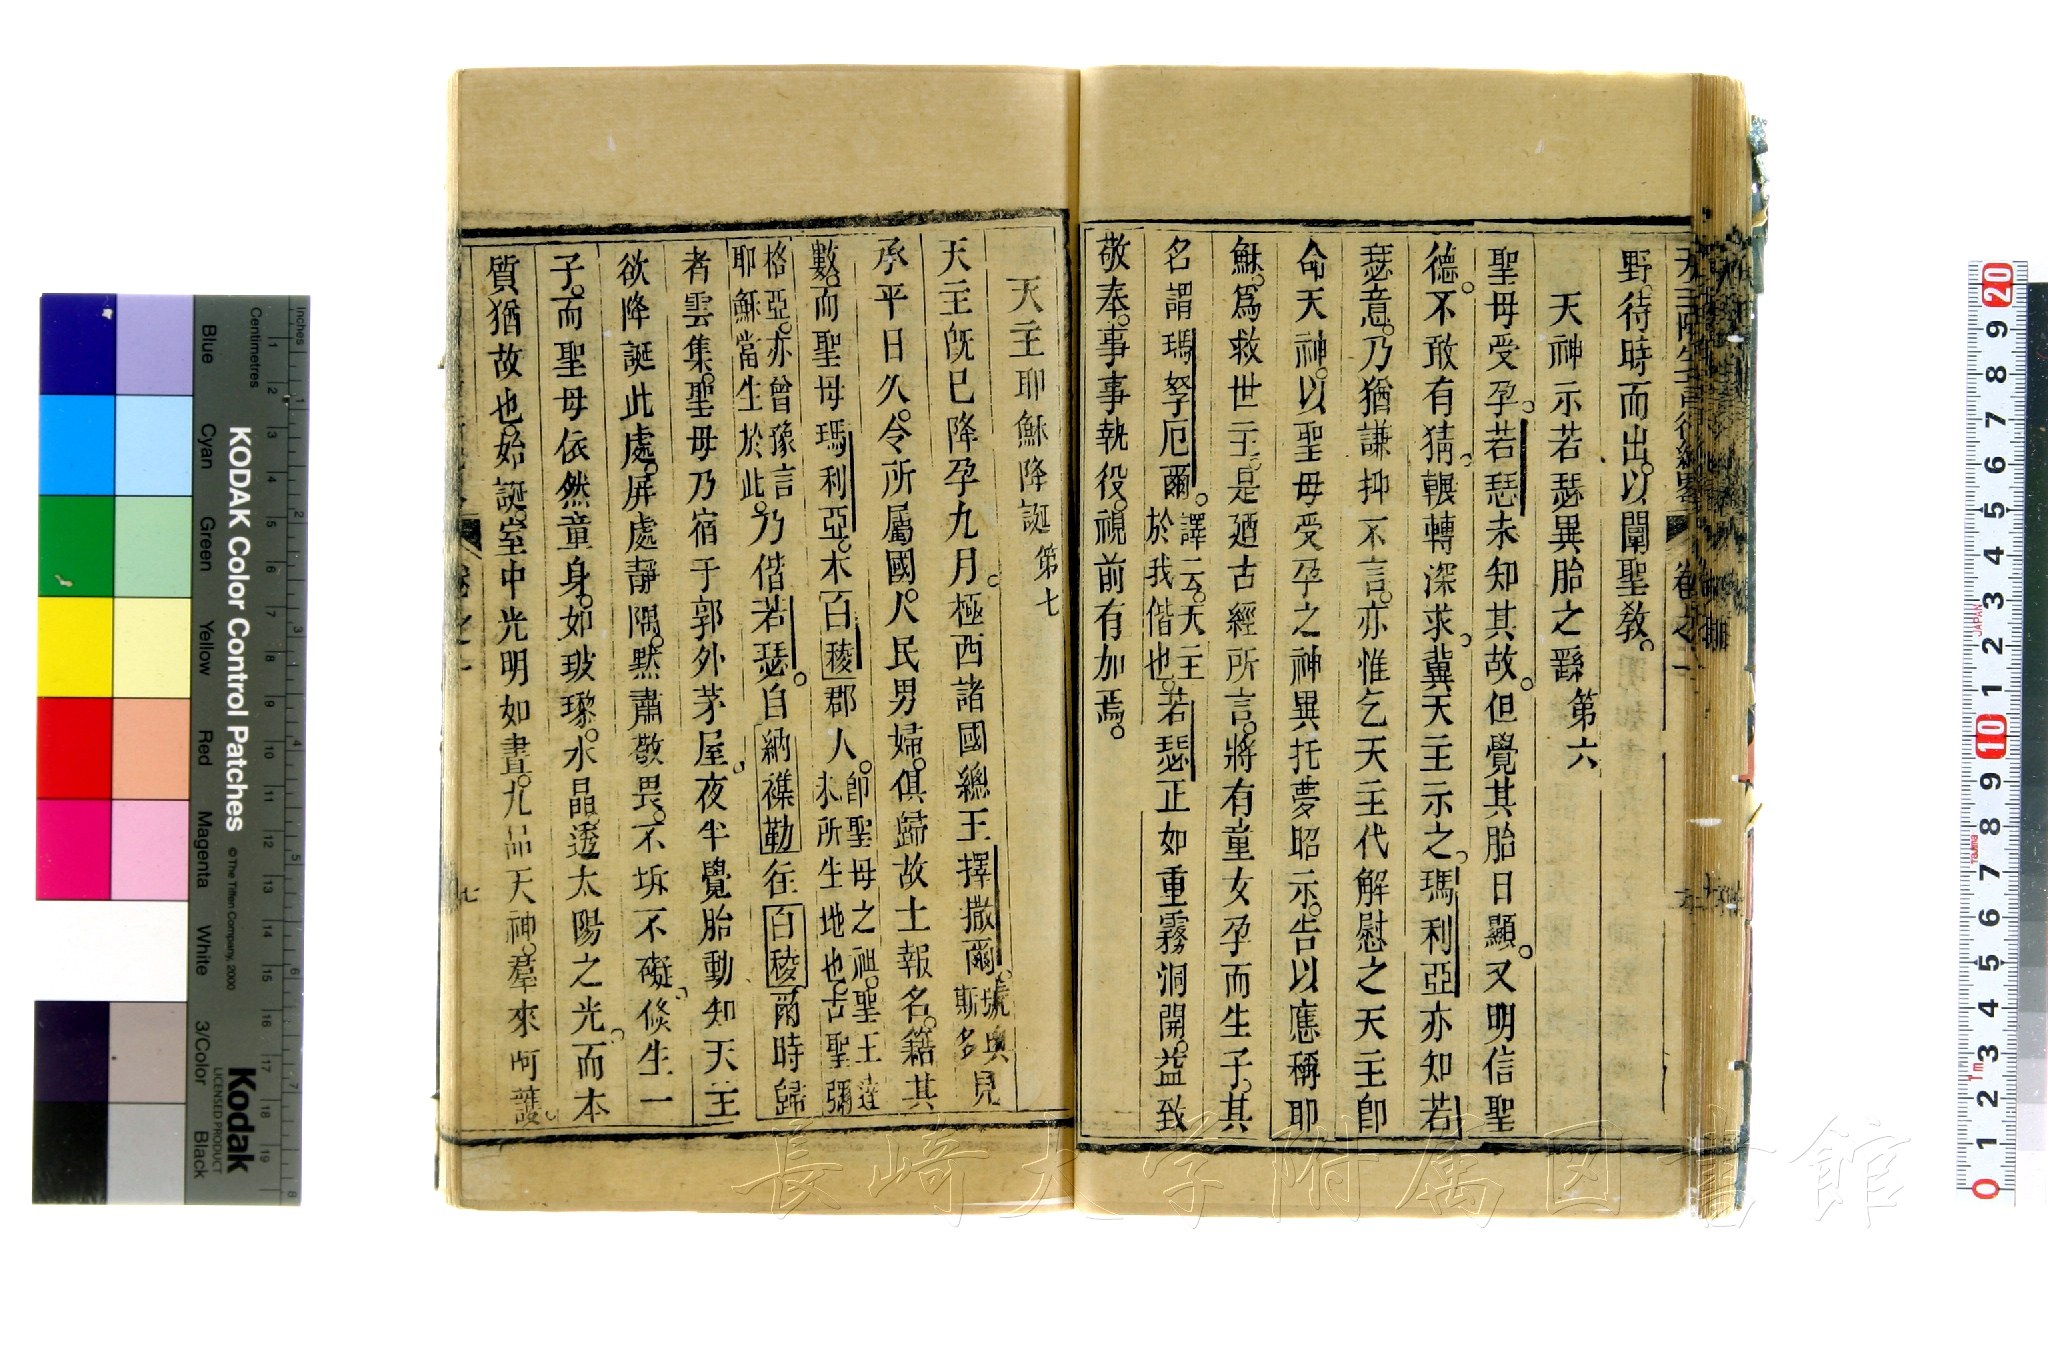 野。待時而出。以闡聖教。
天神示若瑟異胎之繇 第六
聖母受孕。若瑟未知其故。但覺其胎日顯。又明信聖
德。不敢有猜。輾轉深求。冀天主示之。瑪利亞亦知若
瑟意。乃猶謙抑不言。亦惟乞天主代解慰之天主卽
命天神。以聖母受孕之神異托夢昭示。告以應稱耶
穌。爲救世主。是廼古經所言。將有童女孕而生子。其
名謂瑪孥厄爾。譯云。天主於我偕也。若瑟正如重霧洞開。益致
敬奉。事事執役。視前有加焉。
天主耶穌降誕 第七
天主旣已降孕九月。極西諸國總王擇撒爾。號奧斯多見
承平日久。令所屬國。人民男婦。俱歸故土報名。籍其
數。而聖母瑪利亞。本白稜郡人。卽聖母之祖。聖王達未所生地也。古聖彌
格亞。亦曾豫言耶穌當生於此。乃偕若瑟。自納襍勒往白稜。爾時歸
者雲集。聖母乃宿于郭外茅屋。夜半覺胎動知天主
欲降誕此處。屏處靜隅。默肅敬畏。不坼不礙。倐生一
子。而聖母依然童身。如玻瓈。水晶。透太陽之光。而本
質猶故也。始誕。室中光明如晝。九品天神。羣來呵護。
七
長崎大学附属図書館
KODAK Color Control Patches
© The Tiffen Company, 2000
Kodak
LICENSED PRODUCT
Inches
Centimetres
Blue
Cyan
Green
Yellow
Red
Magenta
White
3/Color
Black
JAPAN
Tajima